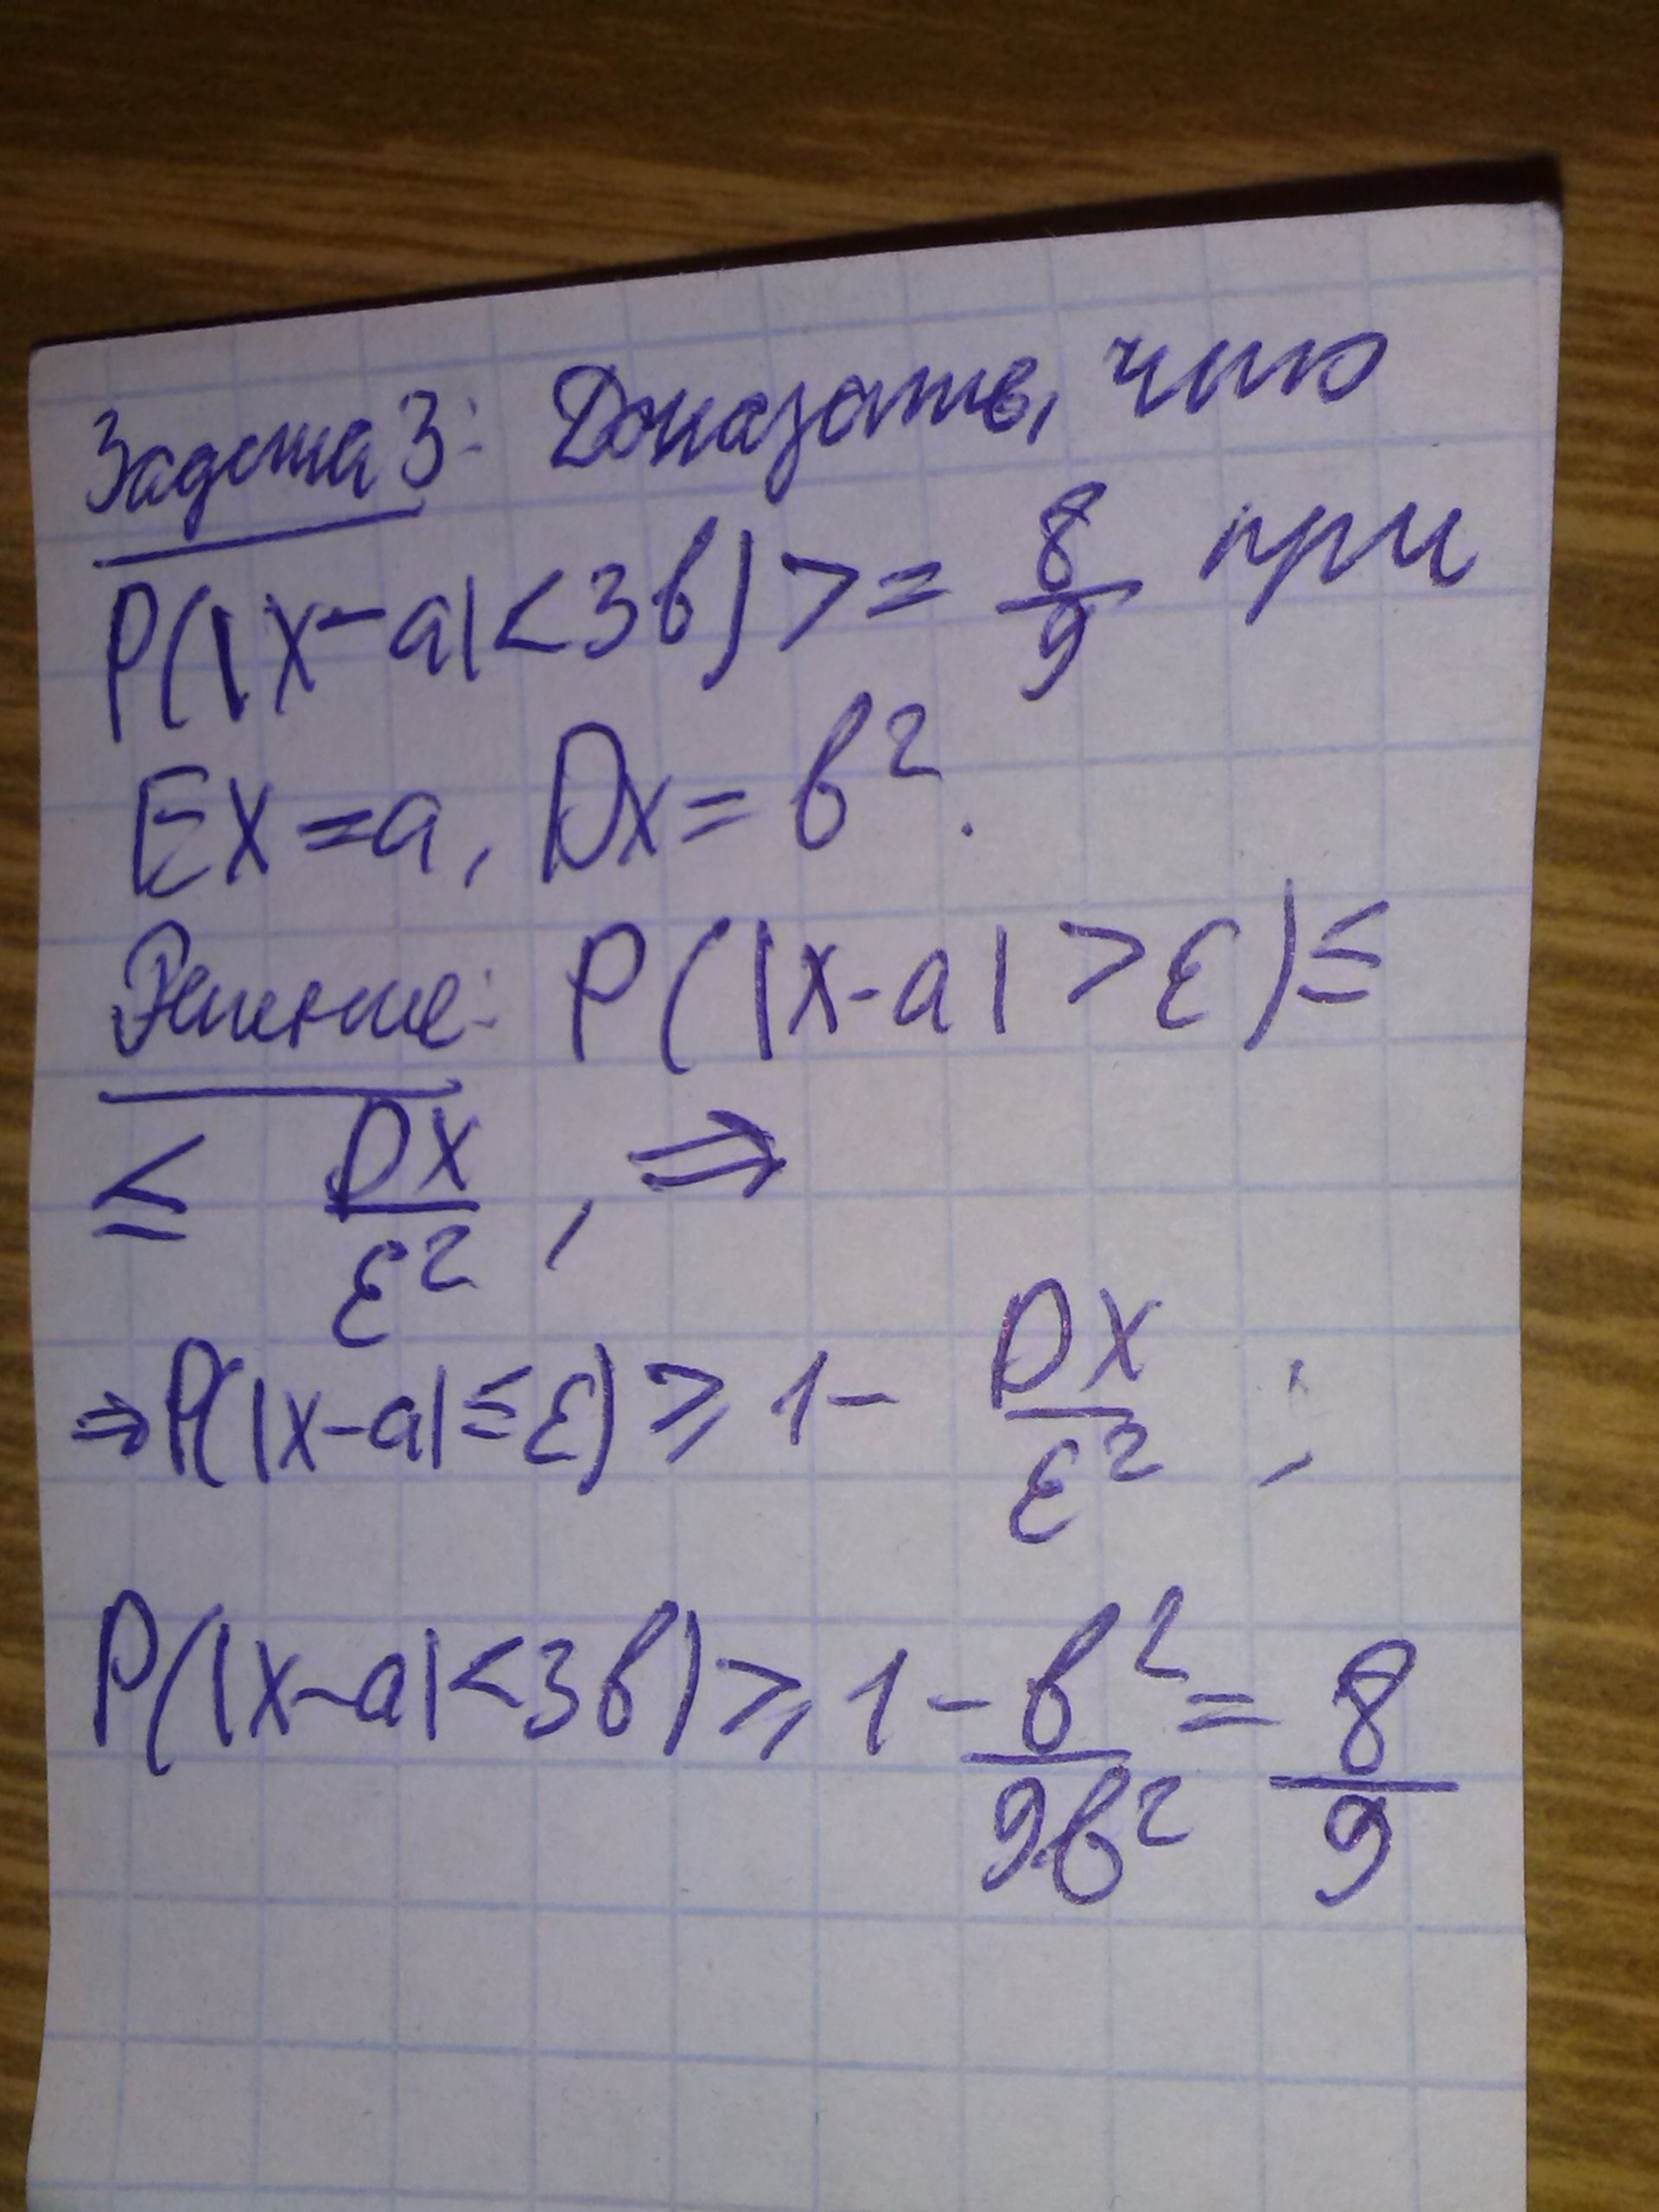 Задача 3: Доказать, что
P(|X-a|<3b)>= 8/9 при
EX=a, DX=b².
Решение: P(|X-a|>ε)≤
≤ DX/ε², ⇒
⇒P(|X-a|≤ε)≥1- DX/ε²;
P(|X-a|<3b)≥1-b²/9b²=8/9